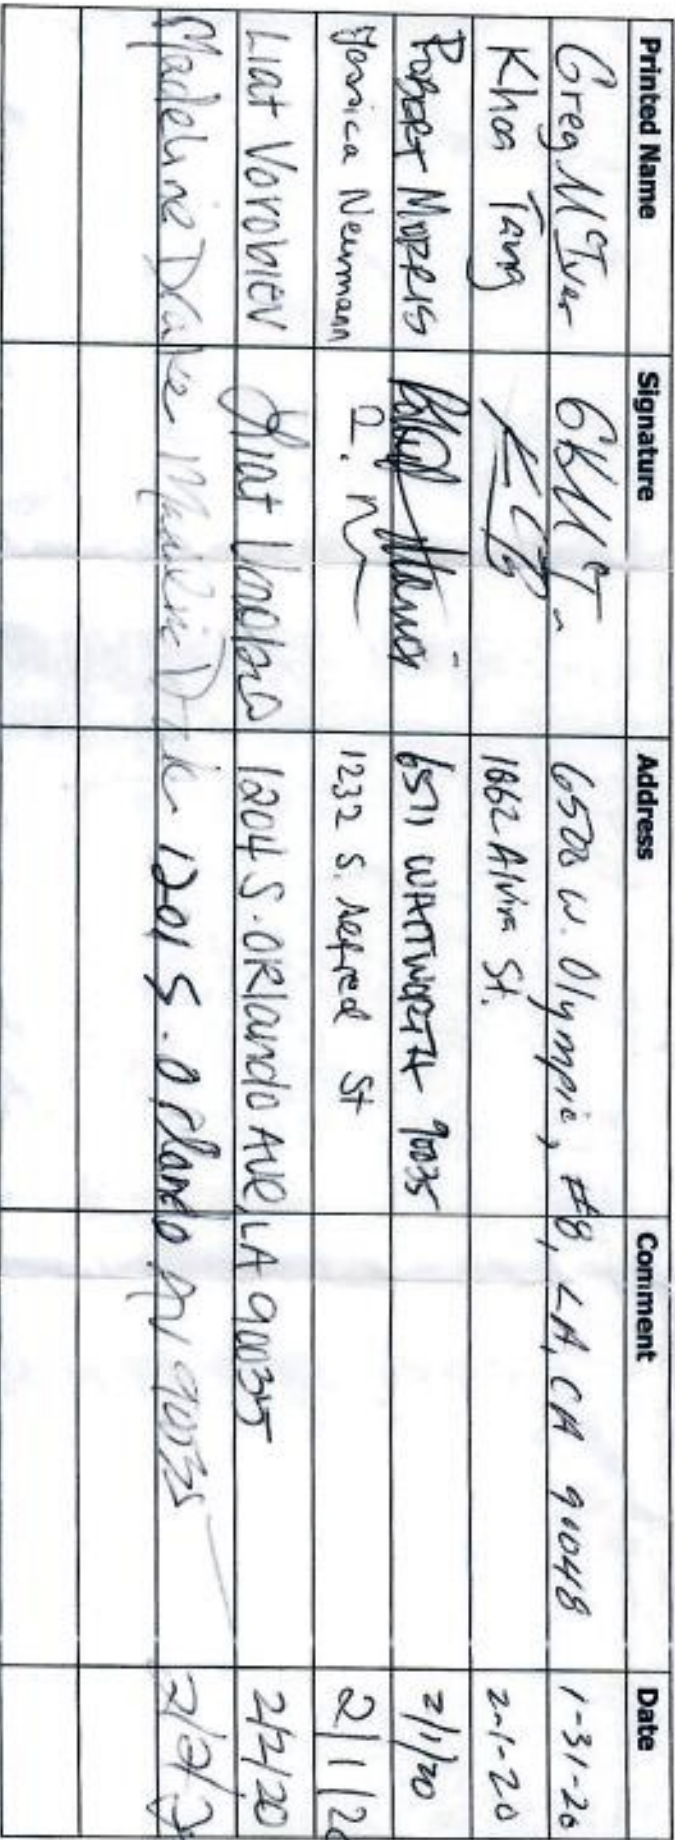 Printed Name Signature Address Comment Date
Greg McIver GKMcI 6500 W. Olympic, #8, LA, CA 90048 1-31-20
Khoa Tang 1862 Alvira St. 2-1-20
Robert Morris 6511 WHITWORTH 90035 2/1/20
Jessica Neumann J. N 1232 S. Alfred St 2/1/20
Liat Vorobiev Liat Vorobiev 1204 S. Orlando Ave, LA 90035 2/2/20
Madeline Drake Madeline Drake 1201 S. Orlando Av 90035 2/2/2